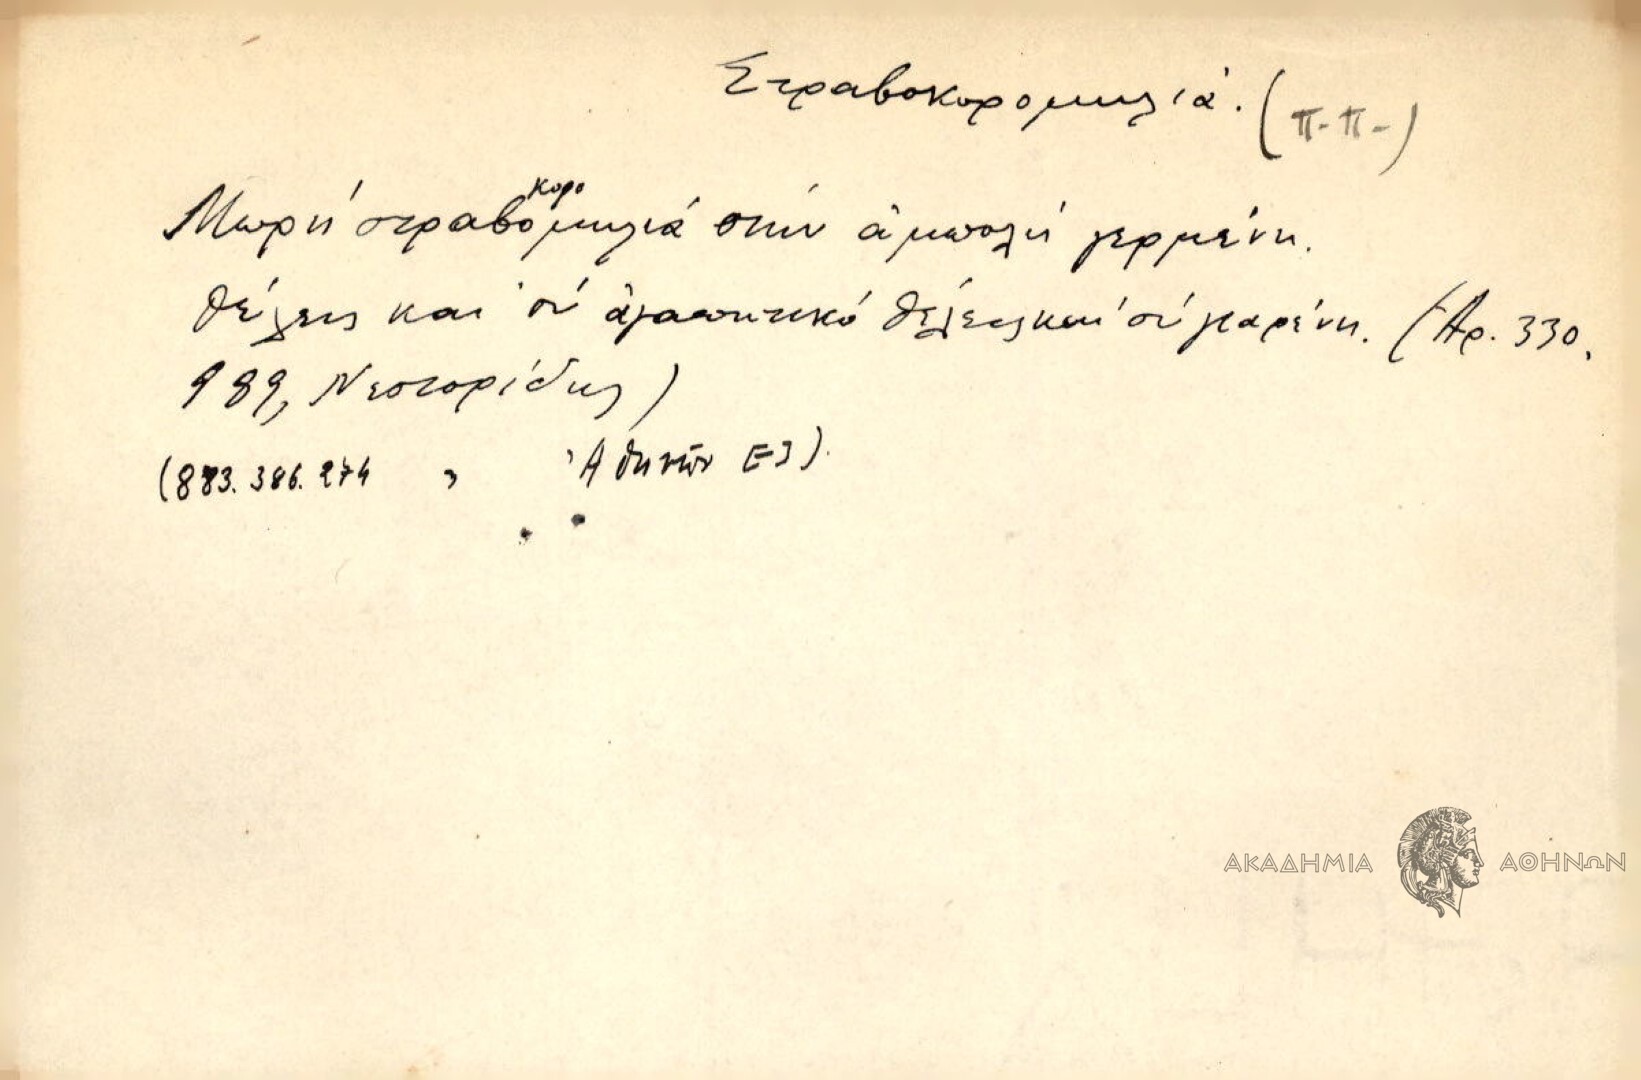 Στραβοκορομηλιά. (Π.Π.)
Μωρή στραβοκορομηλιά στήν ἀμπολή γερμένη.
θέλεις καί σύ ἀγαπητικό θέλεις καί σύ γιαρένη. (Ἀρ. 330,
989, Νεστορίδης)
(883.386.274 , Ἀθηνῶν Ε3).
ΑΚΑΔΗΜΙΑ ΑΘΗΝΩΝ